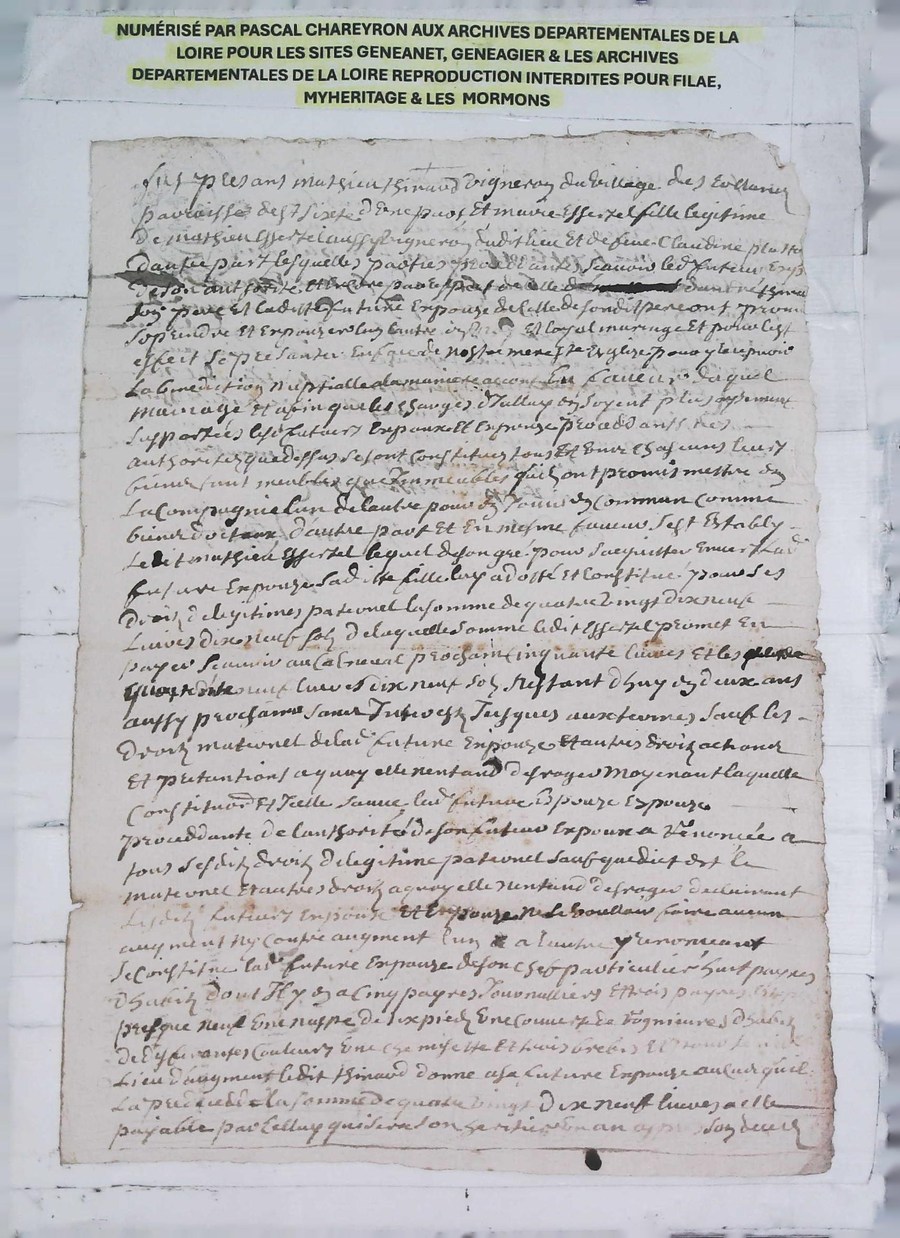 NUMÉRISÉ PAR PASCAL CHAREYRON AUX ARCHIVES DEPARTEMENTALES DE LA
LOIRE POUR LES SITES GENEANET, GENEAGIER & LES ARCHIVES
DEPARTEMENTALES DE LA LOIRE REPRODUCTION INTERDITES POUR FILAE,
MYHERITAGE & LES MORMONS
presans mathieu thinaud vigneron du village des
parroisse de st Sixte d'une part Et marie Essertel fille legitime
de mathieu Essertel aussy vigneron dudit lieu Et de feue Claudine
dautre part lesquelles parties procedantes scavoir led futeur
de son authorité Et
pere Et ladite future Enpouze de celle de sondit pere ont promis
se prendre Et Enpouzer lun lautre Et loyal mariage Et pour cest
effect se presanter En face de nostre mere ste Esglize pour y recepvoir
La benediction nuptialle a la maniere accout En faveur daquel
mariage Et afin que les charges d'Icelluy soyent plus aysement
supportées lesd futeurs Enpoux Et Enpouze procedants des
authorités que dessus se sont constitues tous Et Chascuns leurs
biens tant meubles que Immeubles quils ont promis mettre en
La Compagnie lun de lautre pour en Jouir en Commun comme
biens dotaux d'autre part Et En mesme faveur sest Estably
Ledit mathieu Essertel lequel de son gré pour sacquitter Envers lad
future Enpouze saditte fille luy a dotté Et Constitué pour ses
droitz de legitimes paternel la somme de quatre vingt dix neuf
Livres dix neuf solz de laquelle somme ledit Essertel promet En
payer scavoir au Carnaval prochain Cinquante livres Et les
livres dix neuf solz restant d'huy en deux ans
aussy prochains sans Interestz Jusques aux termes sauf les
Droitz maternel de lad future Enpouze Et autres droitz actions
Et pretantions a quoy elle nentand desroger moyenant laquelle
Constitution Et Icelle sauve lad future Enpouze
proceddante de lauthorité de son futeur Enpoux a renoncée a
tous sesditz droitz de legitime paternel sauf que dict est le
maternel Et autres droitz a quoy elle nentand desroger declairant
Lesditz futeurs Enpoux Et Enpouze ne se voulloir faire aucun
augment ny Contre augment lun a lautre y renonceant
se Constitue lad future Enpouze de son chef particulier huit payres
d'habitz dont Il y en a Cinq payres Journalliers Et trois payres
presque neuf Une nappe de six piedz Une Couverte de
de differantes Couleurs Une chemisette Et trois brebis Et
Lieu d'augment ledit thinaud donne a sa future Enpouze au cas quil
La predecede la somme de quatre vingt Dix neuf livres a elle
payable par Celluy qui sera son heritier Un an apres son deces